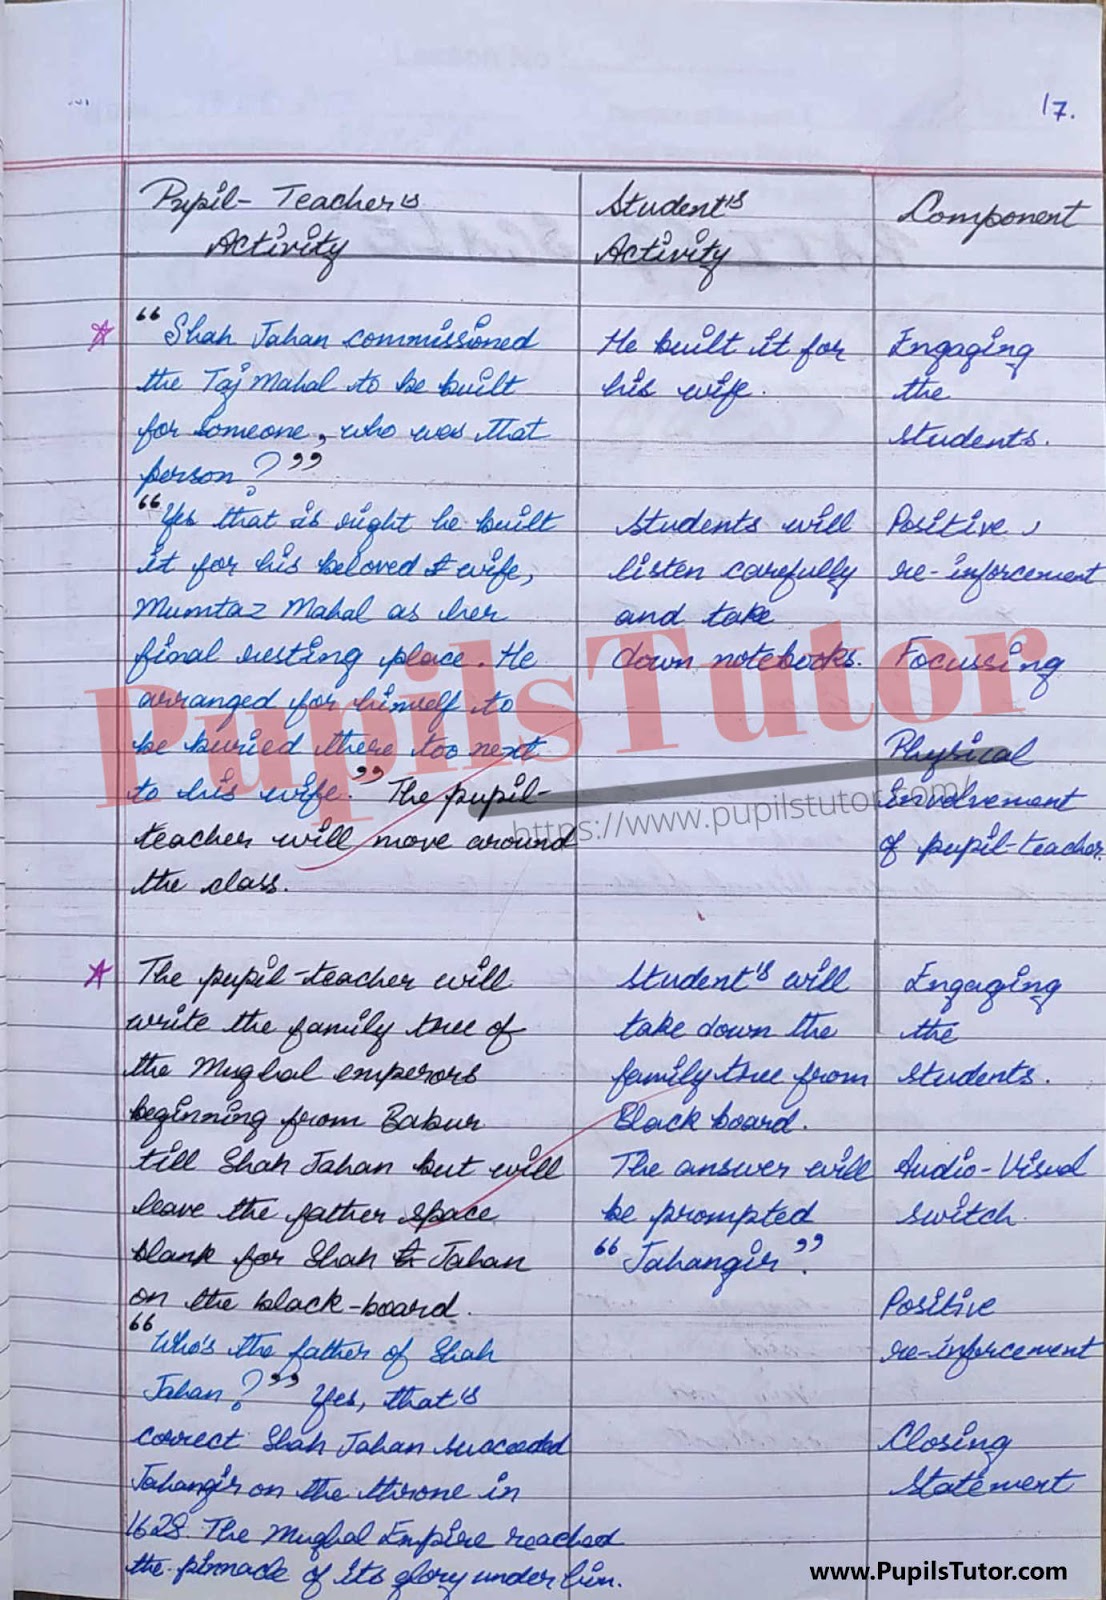 17.
Pupil-Teacher's
Activity
Student's
Activity
Component
"Shah Jahan commissioned
the Taj Mahal to be built
for someone, who was that
person?"
"Yes that is right he built
it for his beloved wife,
Mumtaz Mahal as her
final resting place. He
arranged for himself to
be buried there too next
to his wife." The pupil-
teacher will move around
the class.
He built it for
his wife.
Students will
listen carefully
and take
down notebooks.
Engaging
the
students.
Positive,
re-inforcement
Focussing
Physical
involvement
of pupil-teacher.
The pupil-teacher will
write the family tree of
the Mughal emperors
beginning from Babur
till Shah Jahan but will
leave the father space
blank for Shah Jahan
on the black-board.
"Who's the father of Shah
Jahan?" Yes, that's
correct Shah Jahan succeeded
Jahangir on the throne in
1628. The Mughal Empire reached
the pinnacle of its glory under him.
Student's will
take down the
family tree from
Black board.
The answer will
be prompted
"Jahangir".
Engaging
the
students.
Audio-Visual
switch.
Positive
re-inforcement
Closing
Statement
PupilsTutor
https://www.pupilstutor.com/
www.PupilsTutor.com